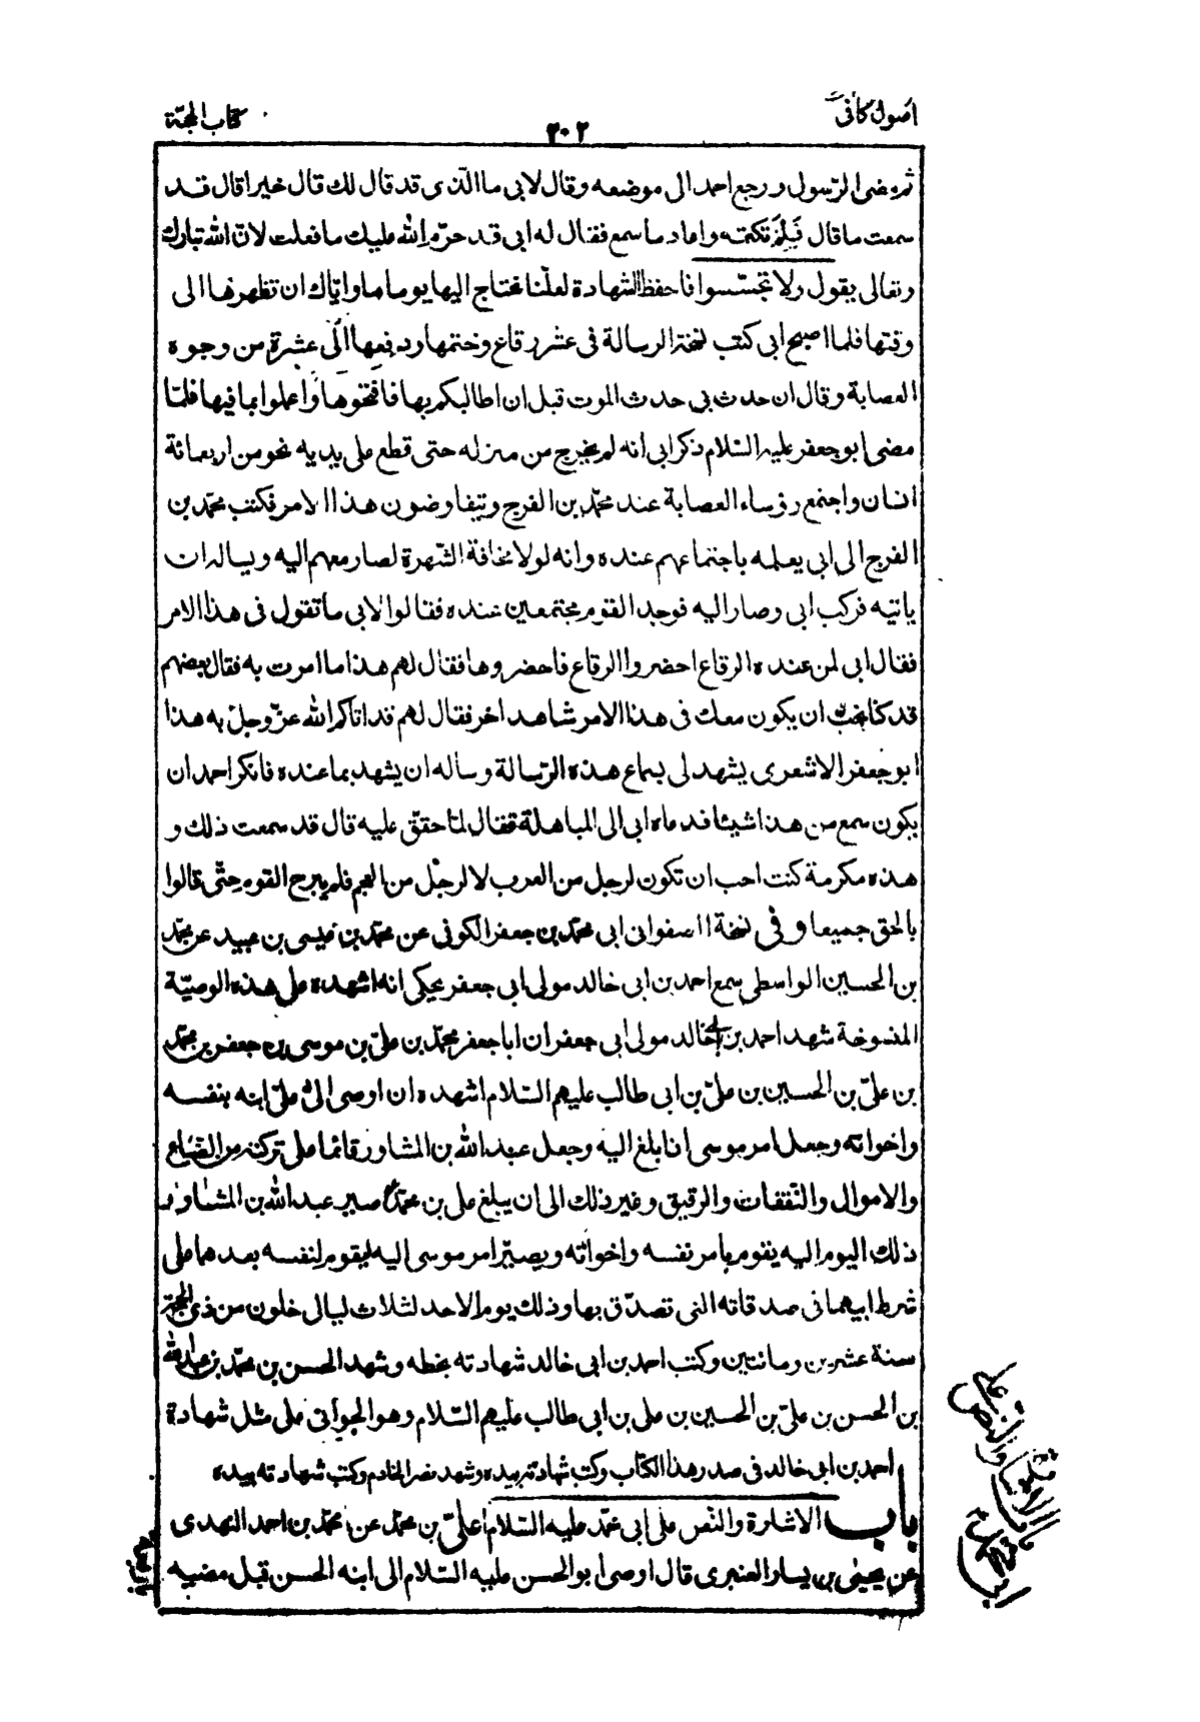 اصول كافى
٢٠٢
كتاب الحجّة
ثم مضى الرّسول ورجع احمد الى موضعه وقال لابى ما الّذى قد قال لك قال خيرا قال قد
سمعت ما قال فَلِمَ تكتمه واعاد ما سمع فقال له ابى قد حرّم الله عليك ما فعلت لانّ الله تبارك
وتعالى يقول ولا تجسّسوا فاحفظ الشهادة لعلّنا نحتاج اليها يوما ما واياك ان تظهرها الى
وقتها فلما اصبح ابى كتب نسخة الرسالة فى عشر رقاع وختمها ودفعها الى عشرة من وجوه
العصابة وقال ان حدث بى حدث الموت قبل ان اطالبكم بها فافتحوها واعملوا بما فيها فلمّا
مضى ابو جعفر عليه السّلام ذكر ابى انه لم يخرج من منزله حتى قطع على يديه نحو من اربعمائة
انسان واجتمع رؤساء العصابة عند محمّد بن الفرج وتيفاوضون هذا الامر فكتب محمّد بن
الفرج الى ابى يعلمه باجتماعهم عنده وانه لولا مخافة الشّهرة لصار معهم اليه ويساله ان
ياتيه فركب ابى وصار اليه فوجد القوم مجتمعين عنده فقالوا لابى ما تقول فى هذا الامر
فقال ابى لمن عنده الرقاع احضروا الرقاع فاحضروها فقال لهم هذا ما امرت به فقال بعضهم
قد كنا نحب ان يكون معك فى هذا الامر شاهد اخر فقال لهم قد اتاكم الله عزّ وجلّ به هذا
ابو جعفر الاشعرى يشهد لى بسماع هذه الرّسالة وساله ان يشهد بما عنده فانكر احمد ان
يكون سمع من هذا شيئا فدعاه ابى الى المباهلة فقال لمّا حقّق عليه قال قد سمعت ذلك و
هذه مكرمة كنت احب ان تكون لرجل من العرب لا لرجل من العجم فلم يبرح القوم حتّى قالوا
بالحق جميعا وفى نسخة الصفوانى ابى محمّد بن جعفر الكوفى عن محمّد بن عيسى بن عبيد عن محمّد
بن الحسين الواسطى سمع احمد بن ابى خالد مولى ابى جعفر يحكى انه اشهده على هذه الوصيّة
المنسوخة شهد احمد بن ابى خالد مولى ابى جعفر ان ابا جعفر محمّد بن علىّ بن موسى بن جعفر بن محمّد
بن علىّ بن الحسين بن علىّ بن ابى طالب عليهم السّلام اشهده ان اوصى الى علىّ ابنه بنفسه
واخواته وجعل امر موسى اذا بلغ اليه وجعل عبد الله بن المشاور قائما على تركته من الضّياع
والاموال والنّفقات والرقيق وغير ذلك الى ان يبلغ على بن محمّد صير عبد الله بن المشاور
ذلك اليوم اليه يقوم بامر نفسه واخواته ويصيّر امر موسى اليه يقوم لنفسه بعدهما على
شرط ابيهما فى صدقاته التى تصدّق بها وذلك يوم الاحد لثلاث ليالى خلون من ذى الحجّة
سنة عشرين ومائتين وكتب احمد بن ابى خالد شهادته بخطه وشهد الحسن بن محمّد بن عبد الله
بن الحسن بن علىّ بن الحسين بن على بن ابى طالب عليهم السّلام وهو الجوانى على مثل شهادة
احمد بن ابى خالد فى صدر هذا الكتاب وكتب شهادته بيده وشهد نصر الخادم وكتب شهادته بيده
باب الاشارة والنّص على ابى محمّد عليه السّلام علىّ بن محمّد عن محمّد بن احمد النهدى
عن يحيى بن يسار العنبرى قال اوصى ابو الحسن عليه السّلام الى ابنه الحسن قبل مضيه